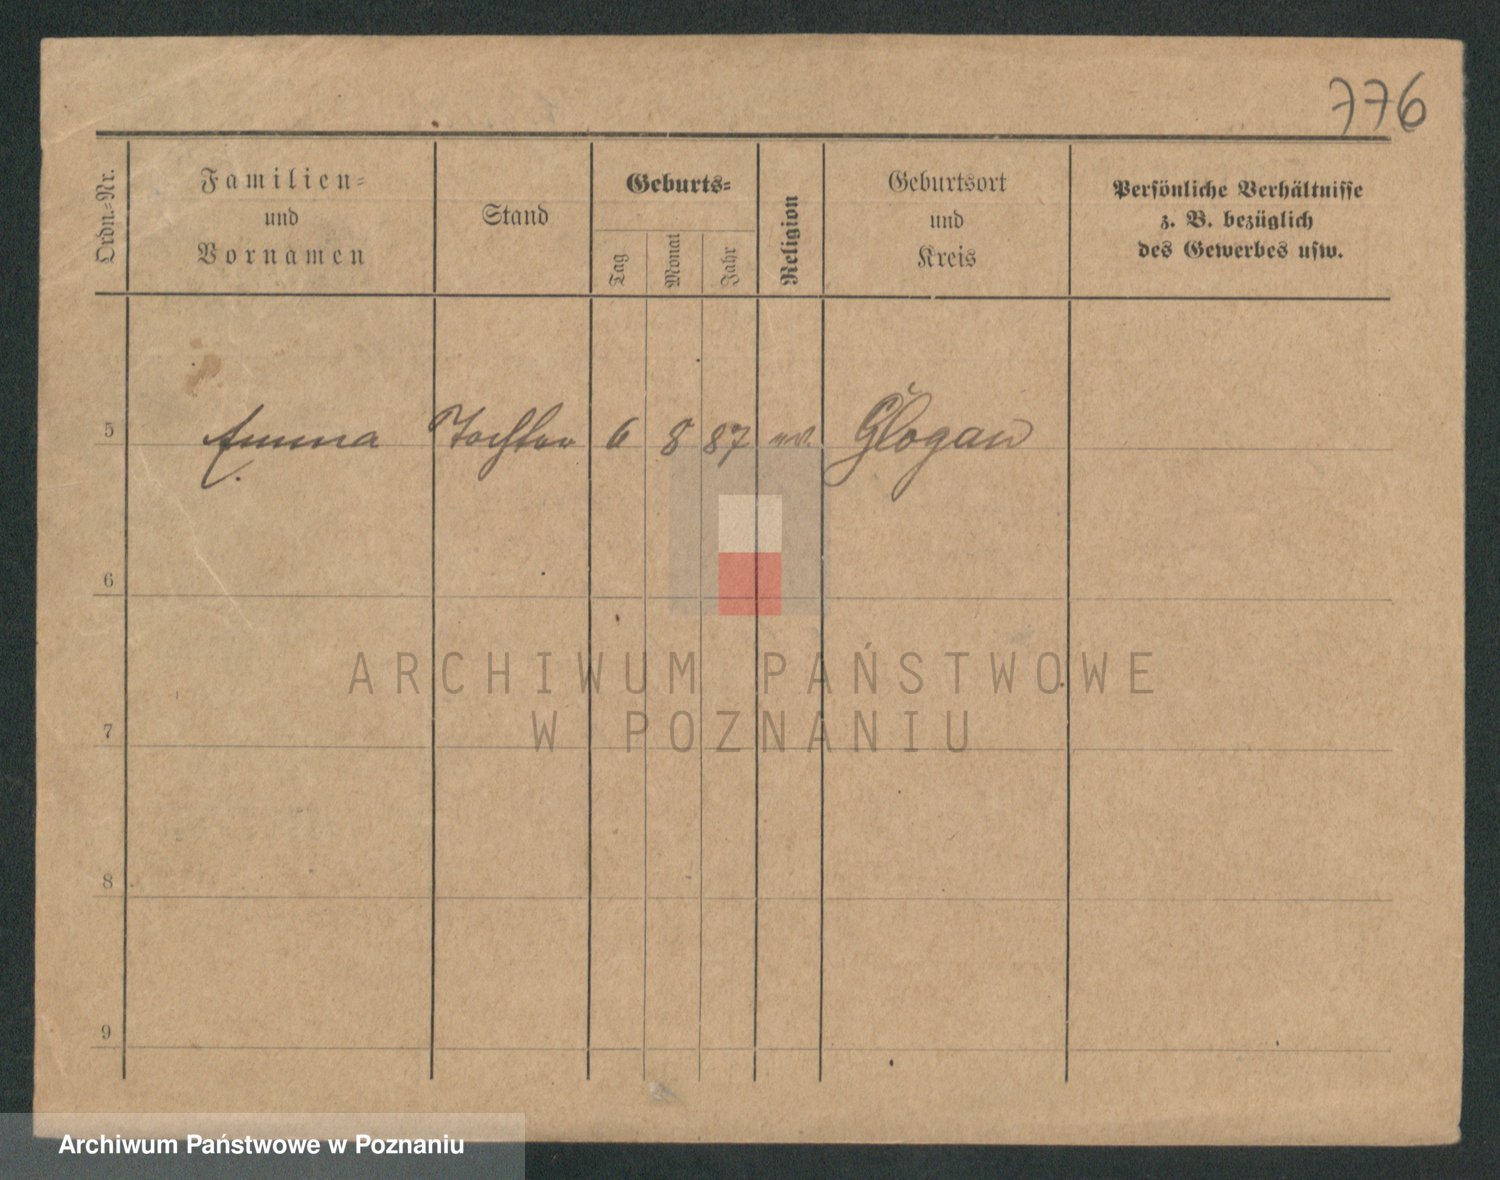 776
Ordn.-Nr.
Familien-
und
Vornamen
Stand
Geburts-
Tag
Monat
Jahr
Religion
Geburtsort
und
Kreis
Persönliche Verhältnisse
z. B. bezüglich
des Gewerbes usw.
5 Emma Tochter 6 8 87 ev. Glogau
6
7
8
9
ARCHIWUM PAŃSTWOWE
W POZNANIU
Archiwum Państwowe w Poznaniu